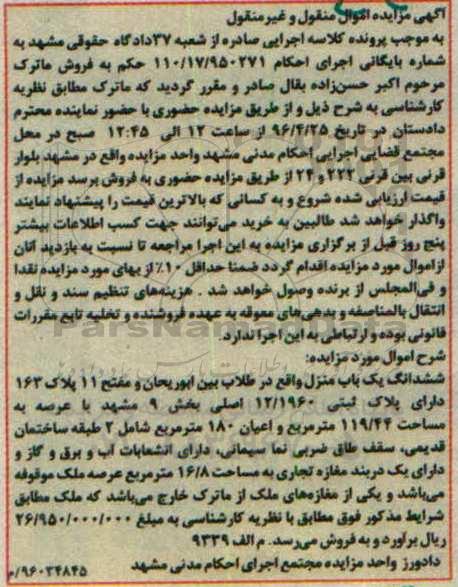 آگهی مزایده اموال منقول و غیرمنقول
به موجب پرونده کلاسه اجرایی صادره از شعبه ۳۷دادگاه حقوقی مشهد به
شماره بایگانی اجرای احکام ۱۱۰/۱۷/۹۵۰۲۷۱ حکم به فروش ماترک
مرحوم اکبر حسن‌زاده بقال صادر و مقرر گردید که ماترک مطابق نظریه
کارشناسی به شرح ذیل و از طریق مزایده حضوری با حضور نماینده محترم
دادستان در تاریخ ۹۶/۴/۲۵ از ساعت ۱۲ الی ۱۲:۴۵ صبح در محل
مجتمع قضایی اجرایی احکام مدنی مشهد واحد مزایده واقع در مشهد بلوار
قرنی بین قرنی ۲۲۲ و ۲۴ از طریق مزایده حضوری به فروش برسد مزایده از
قیمت ارزیابی شده شروع و به کسانی که بالاترین قیمت را پیشنهاد نمایند
واگذار خواهد شد طالبین به خرید می‌توانند جهت کسب اطلاعات بیشتر
پنج روز قبل از برگزاری مزایده به این اجرا مراجعه تا نسبت به بازدید آنان
ازاموال مورد مزایده اقدام گردد ضمنا حداقل ۱۰٪ از بهای مورد مزایده نقدا
و فی‌المجلس از برنده وصول خواهد شد . هزینه‌های تنظیم سند و نقل و
انتقال بالمناصفه و بدهی‌های معوقه به عهده فروشنده و تخلیه تابع مقررات
قانونی بوده و ارتباطی به این اجرا ندارد.
ParsNamadData
شرح اموال مورد مزایده:
ششدانگ یک باب منزل واقع در طلاب بین ابوریحان و مفتح ۱۱ پلاک ۱۶۳
دارای پلاک ثبتی ۱۲/۱۹۶۰ اصلی بخش ۹ مشهد با عرصه به
مساحت ۱۱۹/۴۴ مترمربع و اعیان ۱۸۰ مترمربع شامل ۲ طبقه ساختمان
قدیمی، سقف طاق ضربی نما سیمانی، دارای انشعابات آب و برق و گاز و
دارای یک دربند مغازه تجاری به مساحت ۱۶/۸ مترمربع عرصه ملک موقوفه
می‌باشد و یکی از مغازه‌های ملک از ماترک خارج می‌باشد که ملک مطابق
شرایط مذکور فوق مطابق با نظریه کارشناسی به مبلغ ۲۶/۹۵۰/۰۰۰/۰۰۰
ریال برآورد و به فروش می‌رسد. م الف ۹۳۳۹
دادورز واحد مزایده مجتمع اجرای احکام مدنی مشهد
۹۶۰۳۴۸۴۵/م